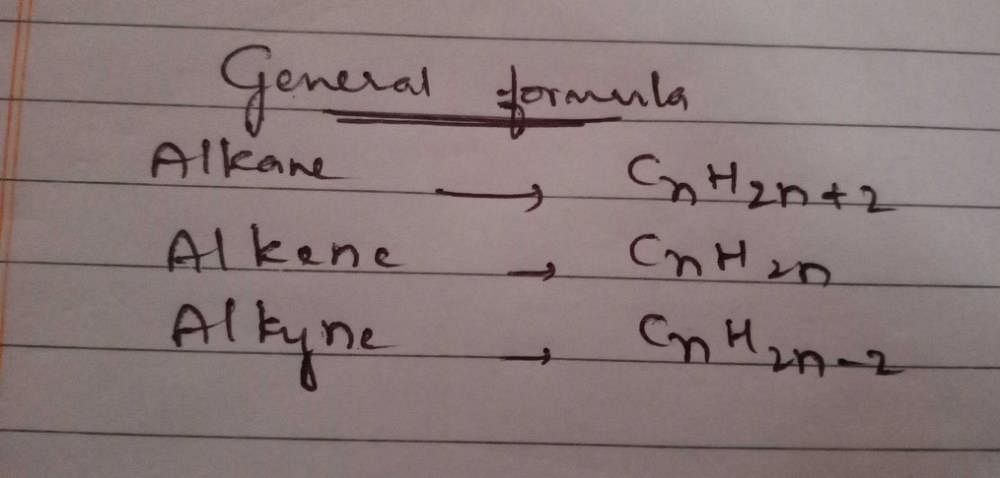 General formula
Alkane → CnH2n+2
Alkene → CnH2n
Alkyne → CnH2n-2